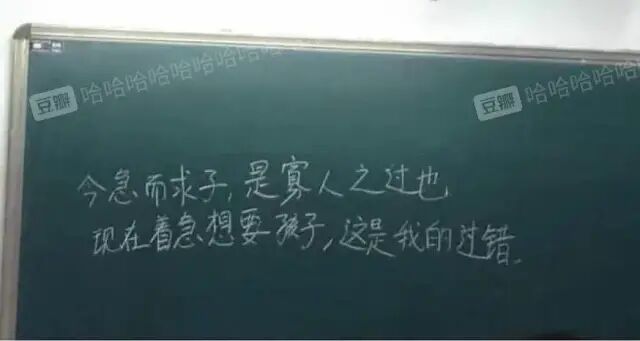 豆瓣 哈哈哈哈哈哈哈哈哈哈
豆瓣 哈哈哈哈哈哈
今急而求子，是寡人之过也
现在着急想要孩子，这是我的过错。